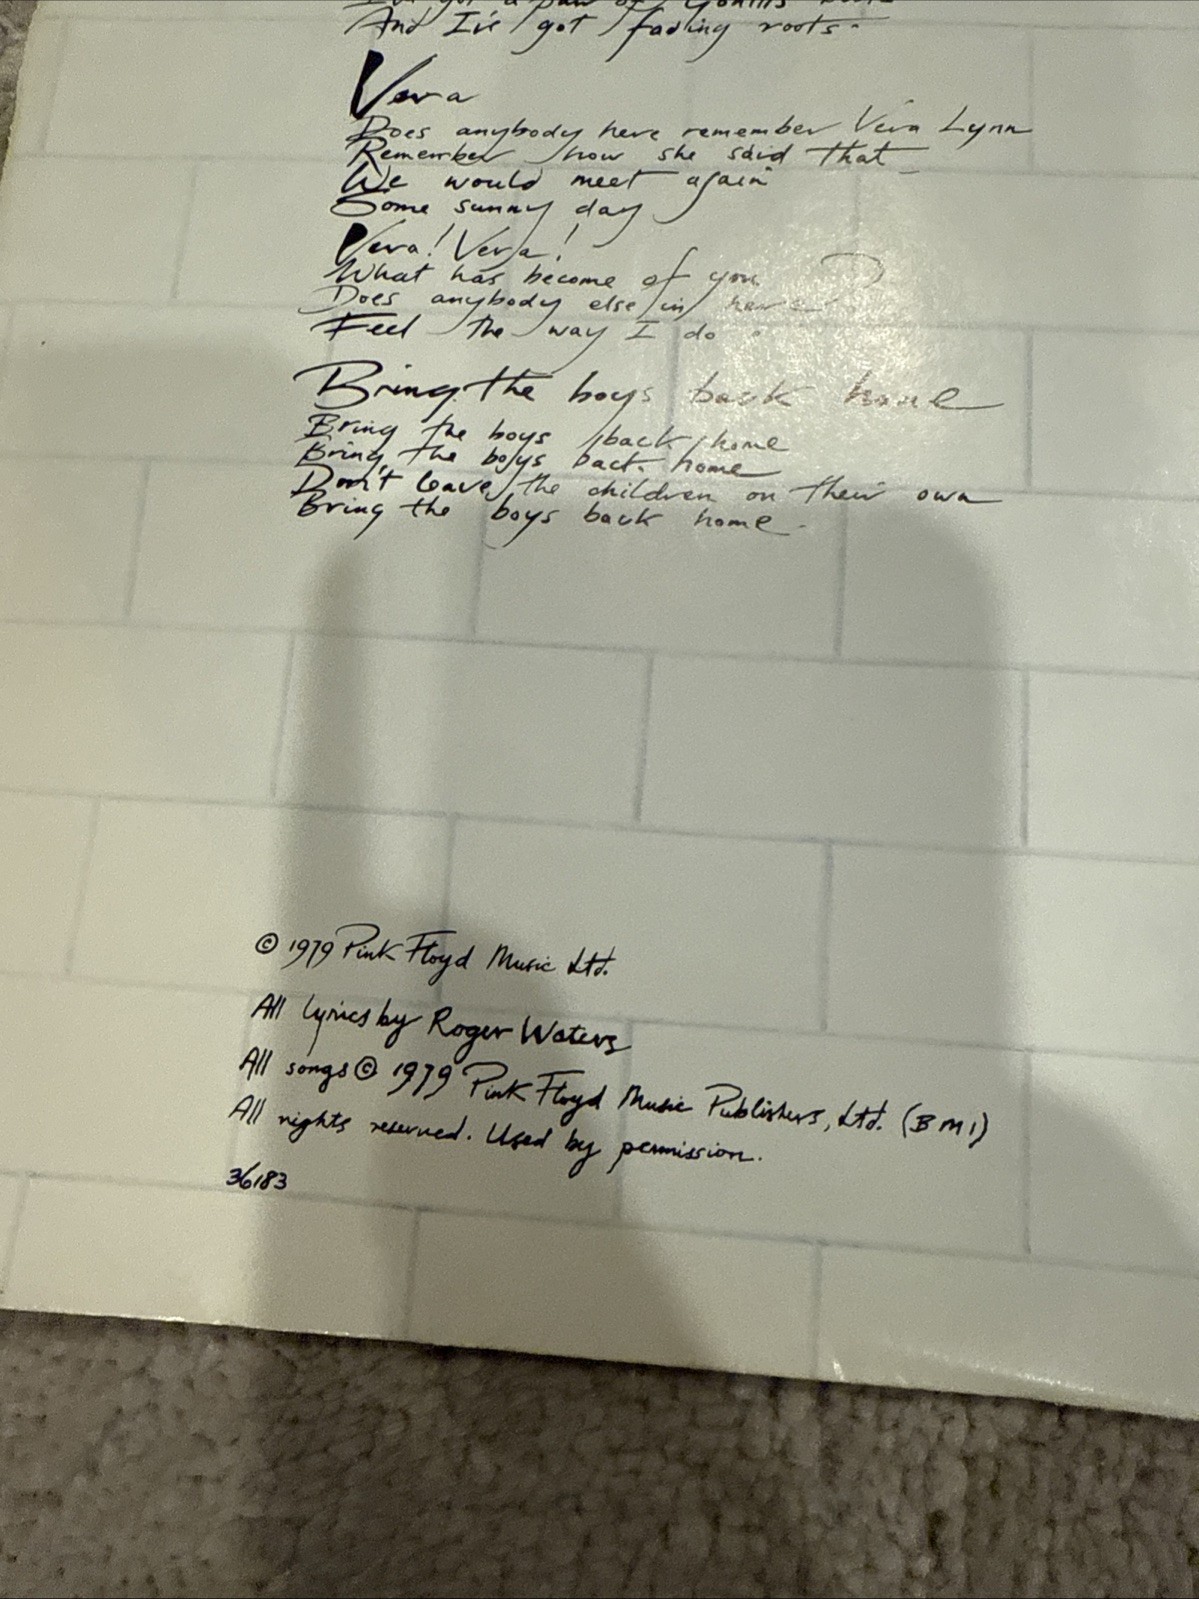 I've got a pair of Gohills boots
And I've got fading roots.
Vera
Does anybody here remember Vera Lynn
Remember how she said that
We would meet again
Some sunny day
Vera! Vera!
What has become of you ?
Does anybody else in here?
Feel the way I do.
Bring the boys back home
Bring the boys back home
Bring the boys back home
Don't leave the children on their own
Bring the boys back home.
© 1979 Pink Floyd Music Ltd.
All lyrics by Roger Waters
All songs © 1979 Pink Floyd Music Publishers, Ltd. (BMI)
All rights reserved. Used by permission.
36183